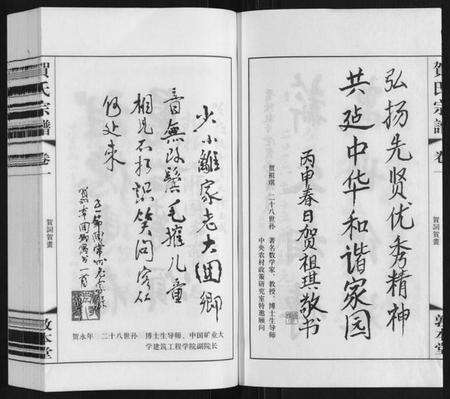 贺氏宗谱
卷一
贺词贺画
敦本堂
弘扬先贤优秀精神
共延中华和谐家园
丙申春日贺祖琪敬书
贺祖琪 二十八世孙 著名数学家、教授、博士生导师
中央农村政策研究室特邀顾问
少小離家老大回鄉
音無改鬢毛摧儿童
相见不相识笑问客从
何处来
贺永年 二十八世孙 博士生导师、中国矿业大
学建筑工程学院副院长
賀氏宗譜
卷一
賀詞賀畫
敦本堂